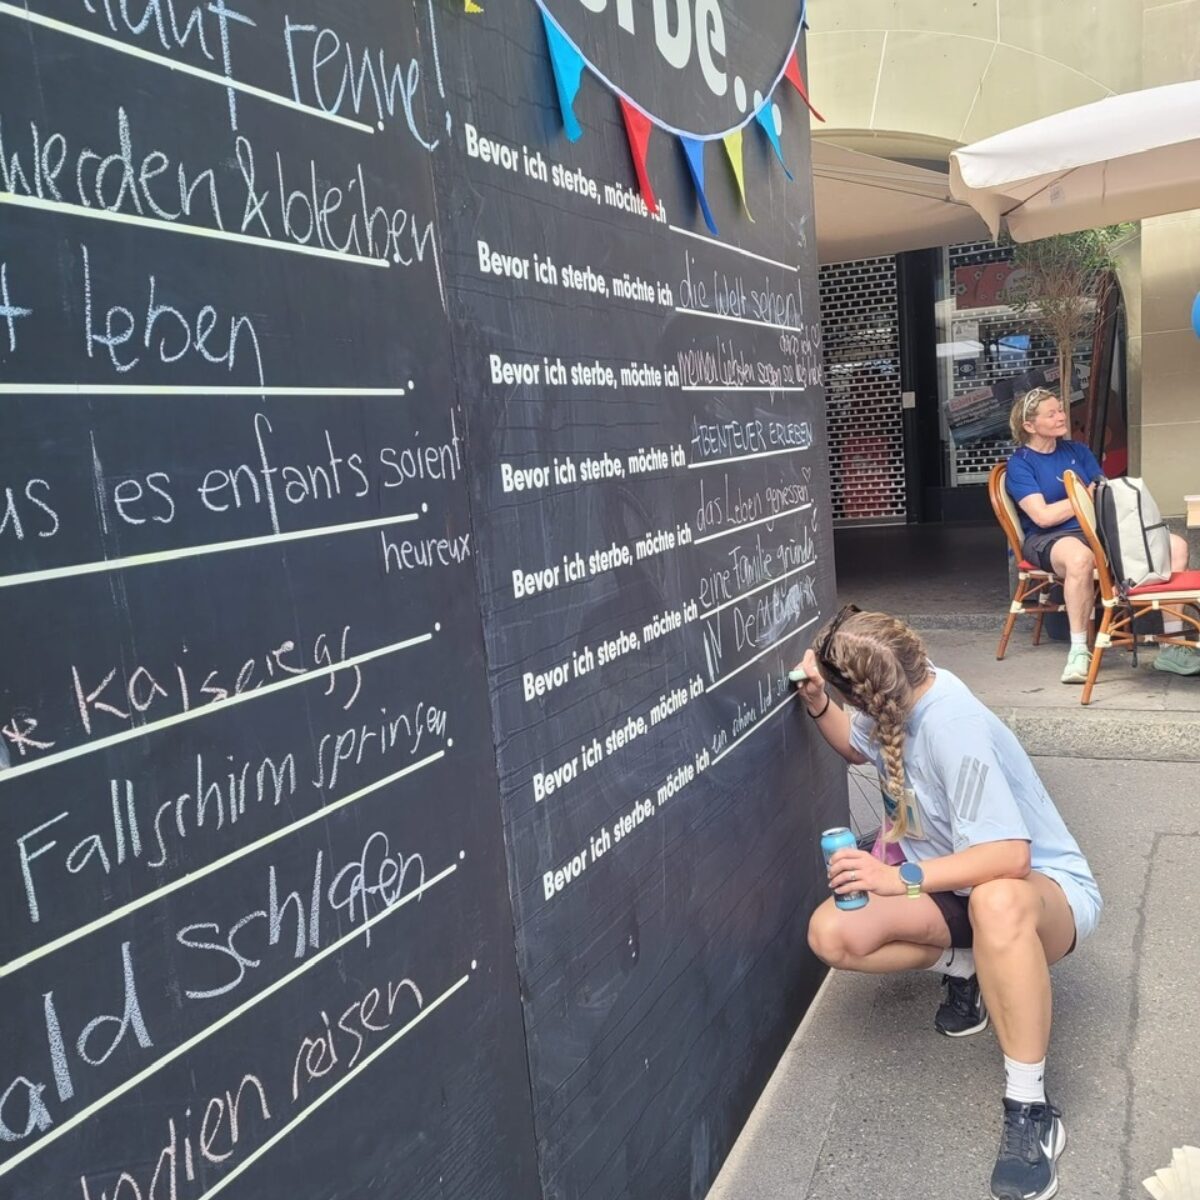 renne!
werden & bleiben
leben
les enfants soient
heureux
* Kaiseregg
Fallschirm springen
ald schlafen
Indien reisen
rbe...
Bevor ich sterbe, möchte ich
Bevor ich sterbe, möchte ich die Welt sehen!
Bevor ich sterbe, möchte ich meinen liebsten sagen
Bevor ich sterbe, möchte ich ABENTEUER ERLEBEN
Bevor ich sterbe, möchte ich das Leben geniessen
Bevor ich sterbe, möchte ich eine Familie gründen
Bevor ich sterbe, möchte ich IN
Bevor ich sterbe, möchte ich ein